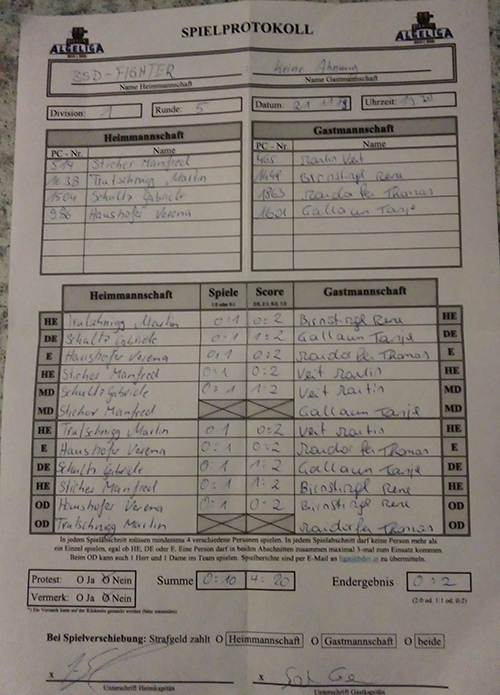 ALGELIGA SPIELPROTOKOLL ALGELIGA
BSD-FIGHTER Keine Ahnung
Name Heimmannschaft Name Gastmannschaft
Division: 1 Runde: 5 Datum: 21 11 Uhrzeit: 19 30
Heimmannschaft Gastmannschaft
PC - Nr. Name PC - Nr. Name
514 Sticher Manfred 465 Martin Veit
Tratschnigg Martin Birnstingl Rene
1504 Schultz Gabriele 1863 Thomas
986 Haushofer Verena 1601 Gallaun Tanja
Heimmannschaft Spiele Score Gastmannschaft
HE Tratschnigg Martin 0:1 0:2 Birnstingl Rene HE
DE Schultz Gabriele 0:1 1:2 Gallaun Tanja DE
E Haushofer Verena 0:1 0:2 Thomas E
HE Sticher Manfred 0:1 0:2 Veit Martin HE
MD Schultz Gabriele 0:1 1:2 Veit Martin MD
MD Sticher Manfred Gallaun Tanja MD
HE Tratschnigg Martin 0:1 0:2 Veit Martin HE
E Haushofer Verena 0:1 0:2 Thomas E
DE Schultz Gabriele 0:1 1:2 Gallaun Tanja DE
HE Sticher Manfred 0:1 1:2 Birnstingl Rene HE
OD Haushofer Verena 0:1 0:2 Birnstingl Rene OD
OD Tratschnigg Martin Thomas OD
In jedem Spielabschnitt müssen mindestens 4 verschiedene Personen spielen. In jedem Spielabschnitt darf keine Person mehr als
ein Einzel spielen, egal ob HE, DE oder E. Eine Person darf in beiden Abschnitten zusammen maximal 3-mal zum Einsatz kommen.
Beim OD kann auch 1 Herr und 1 Dame im Team spielen. Spielberichte sind per E-Mail an zu übermitteln.
Protest: O Ja O Nein Summe 0:10 4:20 Endergebnis 0:2
Vermerk: O Ja O Nein (2:0 od. 1:1 od. 0:2)
*) Ein Vermerk kann auf der Rückseite gemacht werden (bitte unterschreiben)
Bei Spielverschiebung: Strafgeld zahlt O Heimmannschaft O Gastmannschaft O beide
x x
Unterschrift Heimkapitän Unterschrift Gastkapitän